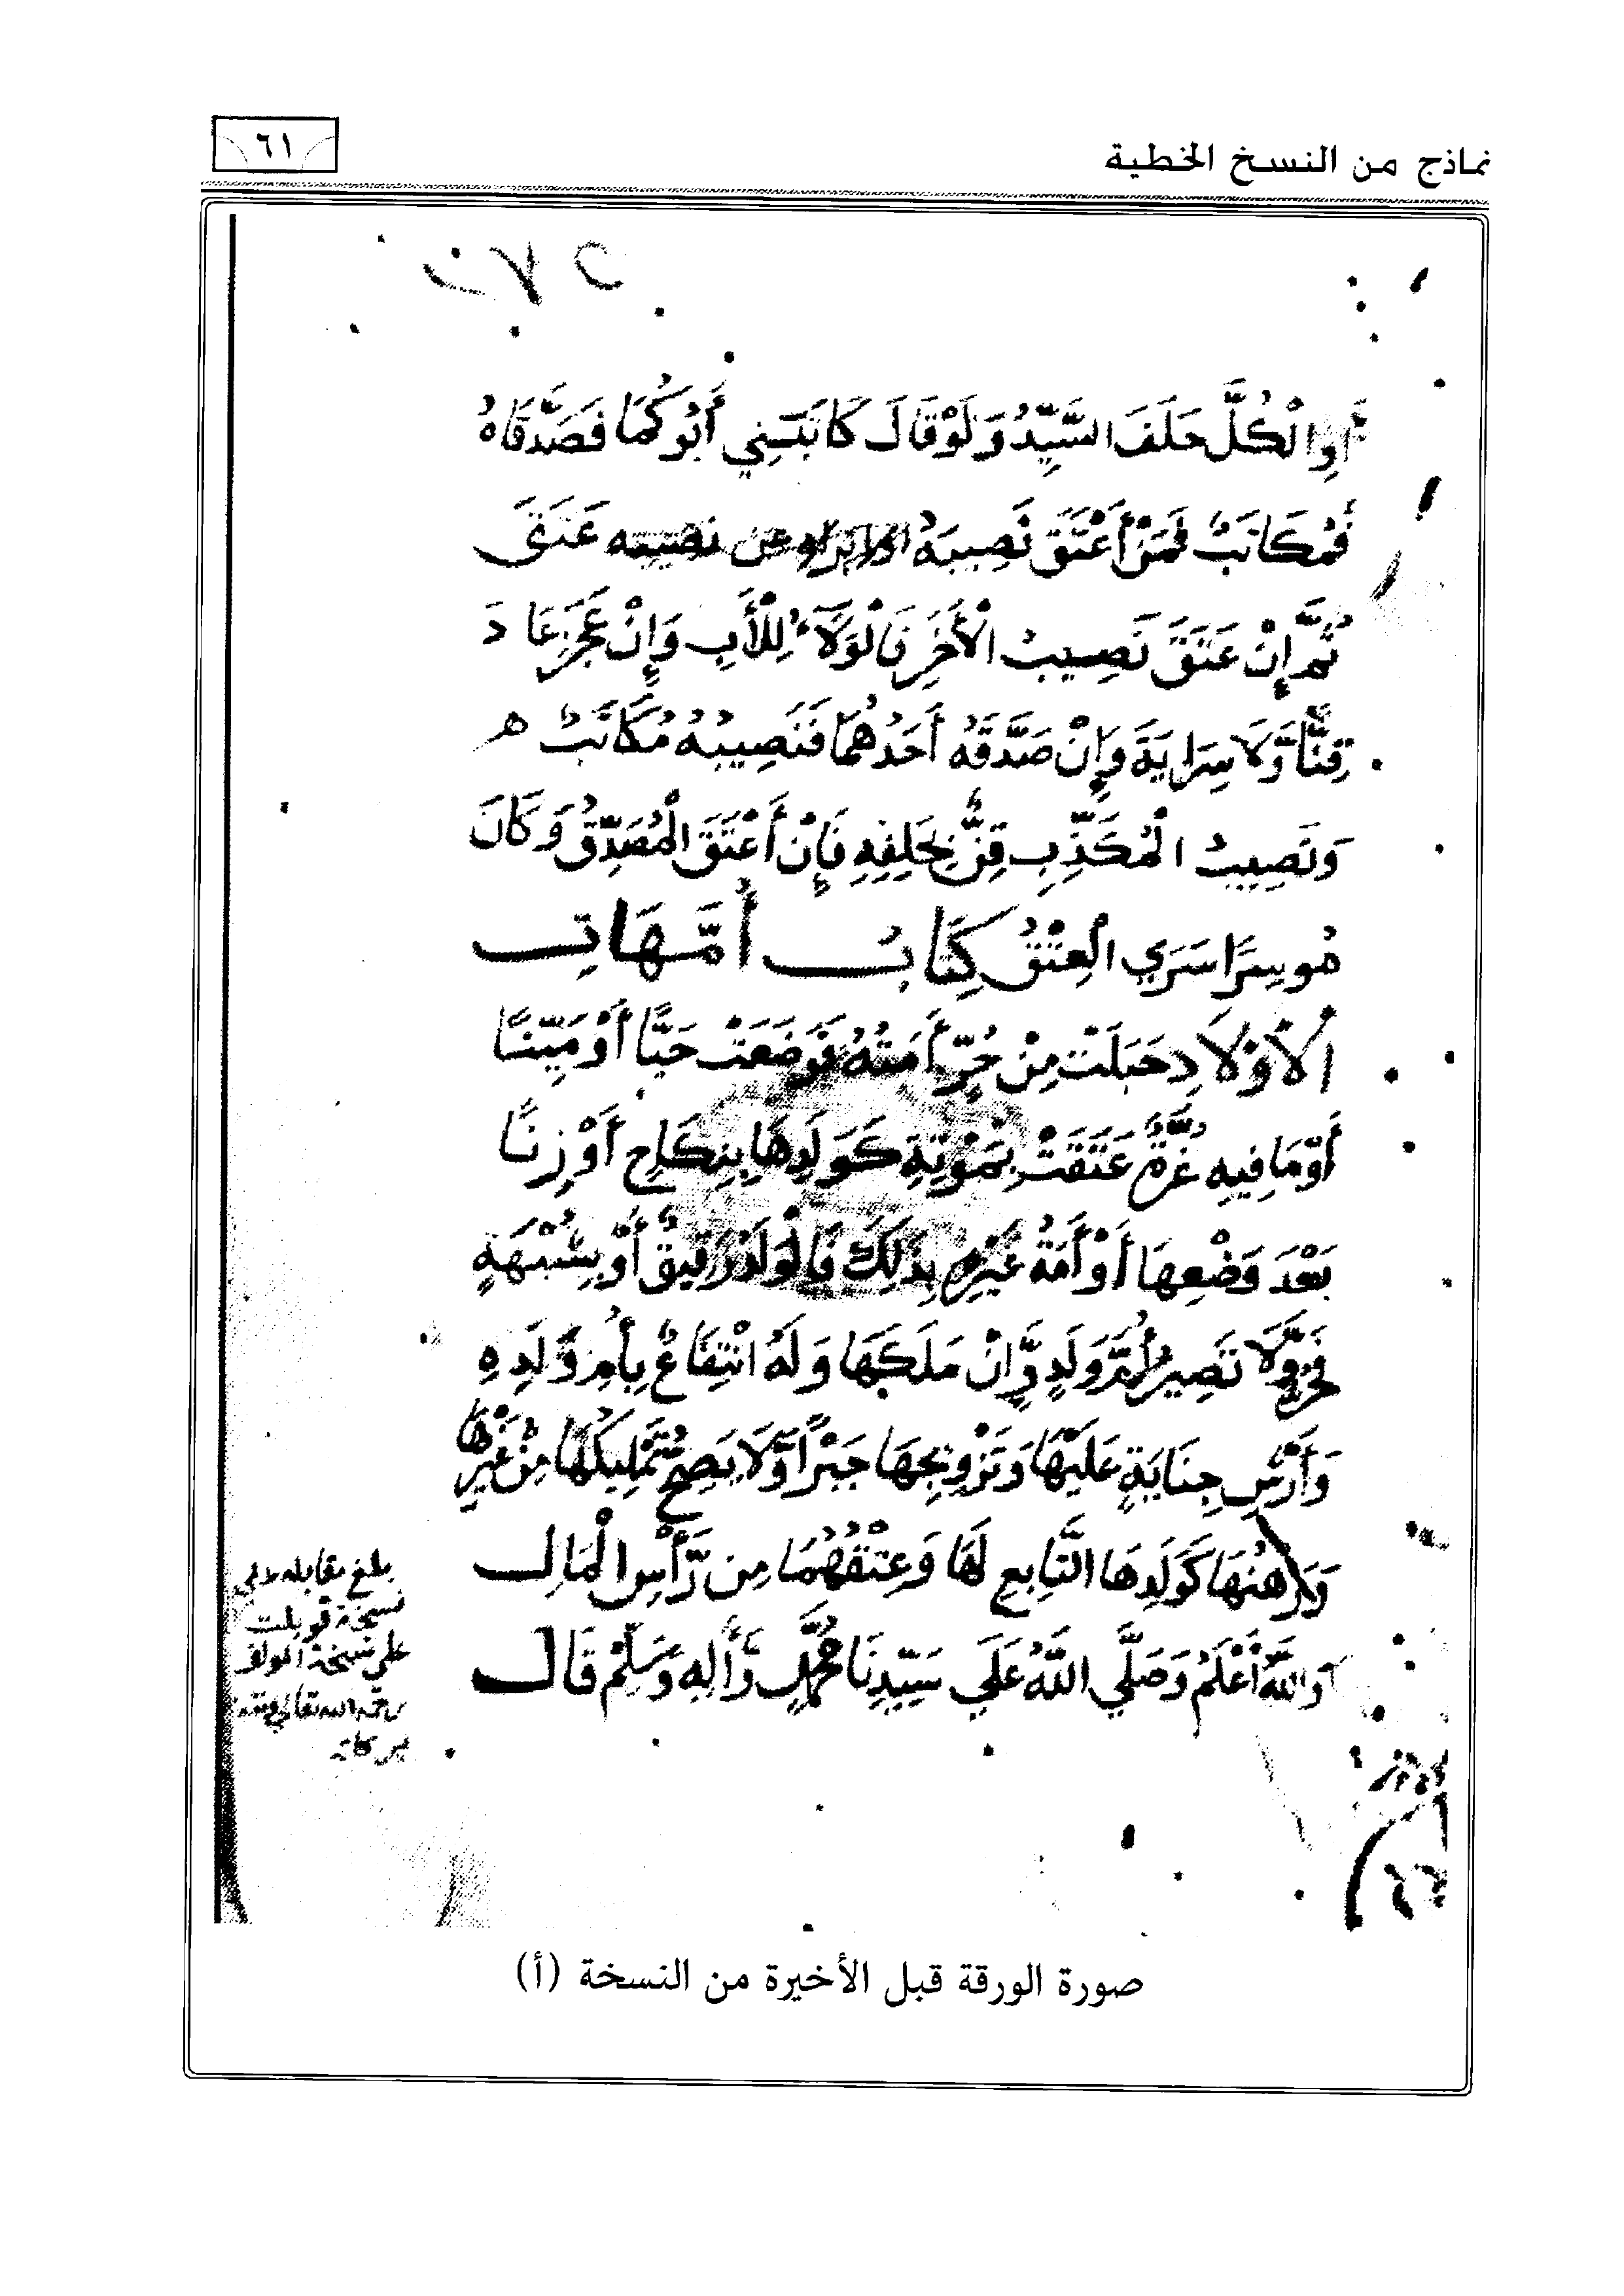 نماذج من النسخ الخطية
٦١
أَوِ الْكُلَّ حَلَفَ السَّيِّدُ وَلَوْ قَالَ كَاتَبَنِي أَبُوكُمَا فَصَدَّقَاهُ
فَمُكَاتَبٌ فَمَنْ أَعْتَقَ نَصِيبَهُ أو أبرأه عن نصيبه عَتَقَ
ثُمَّ إِنْ عَتَقَ نَصِيبُ الْأَخَرِ فَالْوَلَاءُ لِلْأَبِ وَإِنْ عَجَزَ عَادَ
قِنًّا وَّلَا سِرَايَةَ وَإِنْ صَدَّقَهُ أَحَدُهُمَا فَنَصِيبُهُ مُكَاتَبٌ
وَنَصِيبُ الْمُكَذِّبِ قِنٌّ بِحَلِفِهِ فَإِنْ أَعْتَقَ الْمُصَدِّقُ وَكَانَ
مُوسِرًا سَرَي الْعِتْقُ كِتَابُ أُمَّهَاتِ
الْأَوْلَادِ حَبَلَتْ مِنْ حُرٍّ أَمَتُهُ فَوَضَعَتْ حَيًّا أَوْ مَيِّتًا
أَوْ مَا فِيهِ غُرَّةٌ عَتَقَتْ بِمَوْتِهِ كَوَلَدِهَا بِنِكَاحٍ أَوْ زِنًا
بَعْدَ وَضْعِهَا أَوْ أَمَةُ غَيْرِهِ بِذَلِكَ فَالْوَلَدُ رَقِيقٌ أَوْ بِشُبْهَةٍ
فَحُرٌّ وَّلَا تَصِيرُ أُمَّ وَلَدٍ وَّإِنْ مَلَكَهَا وَلَهُ انْتِفَاعٌ بِأُمِّ وَلَدِهِ
وَأَرْشِ جِنَايَةٍ عَلَيْهَا وَتَزْوِيجِهَا جَبْرًا وَّلَا يَصِحُّ تَمْلِيكُهَا مِنْ غَيْرِهَا
وَرَهْنُهَا كَوَلَدِهَا التَّابِعِ لَهَا وَعِتْقُهُمَا مِن رَّأْسِ الْمَالِ
وَاللَّهُ أَعْلَمُ وَصَلَّي اللَّهُ عَلَي سَيِّدِنَا مُحَمَّدٍ وَّأَلِهِ وَسَلَّمَ قَالَ
بلغ مقابله علي
نسخة قوبلت
علي نسخة المولف
رحمه الله تعالي
صورة الورقة قبل الأخيرة من النسخة (أ)